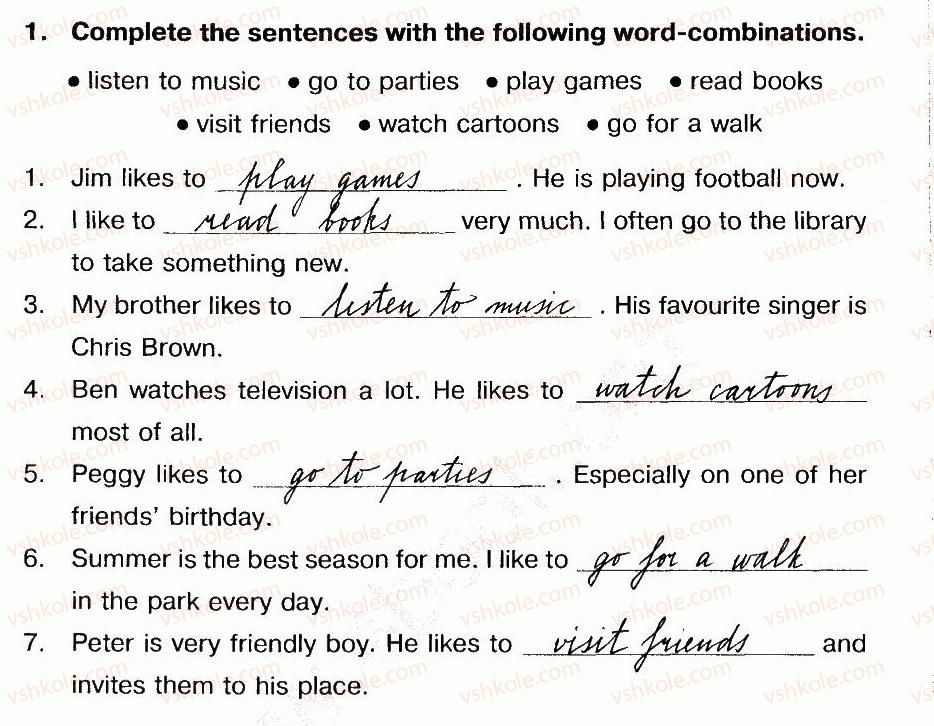 1. Complete the sentences with the following word-combinations.
• listen to music • go to parties • play games • read books
• visit friends • watch cartoons • go for a walk
1. Jim likes to play games . He is playing football now.
2. I like to read books very much. I often go to the library
to take something new.
3. My brother likes to listen to music . His favourite singer is
Chris Brown.
4. Ben watches television a lot. He likes to watch cartoons
most of all.
5. Peggy likes to go to parties . Especially on one of her
friends' birthday.
6. Summer is the best season for me. I like to go for a walk
in the park every day.
7. Peter is very friendly boy. He likes to visit friends and
invites them to his place.